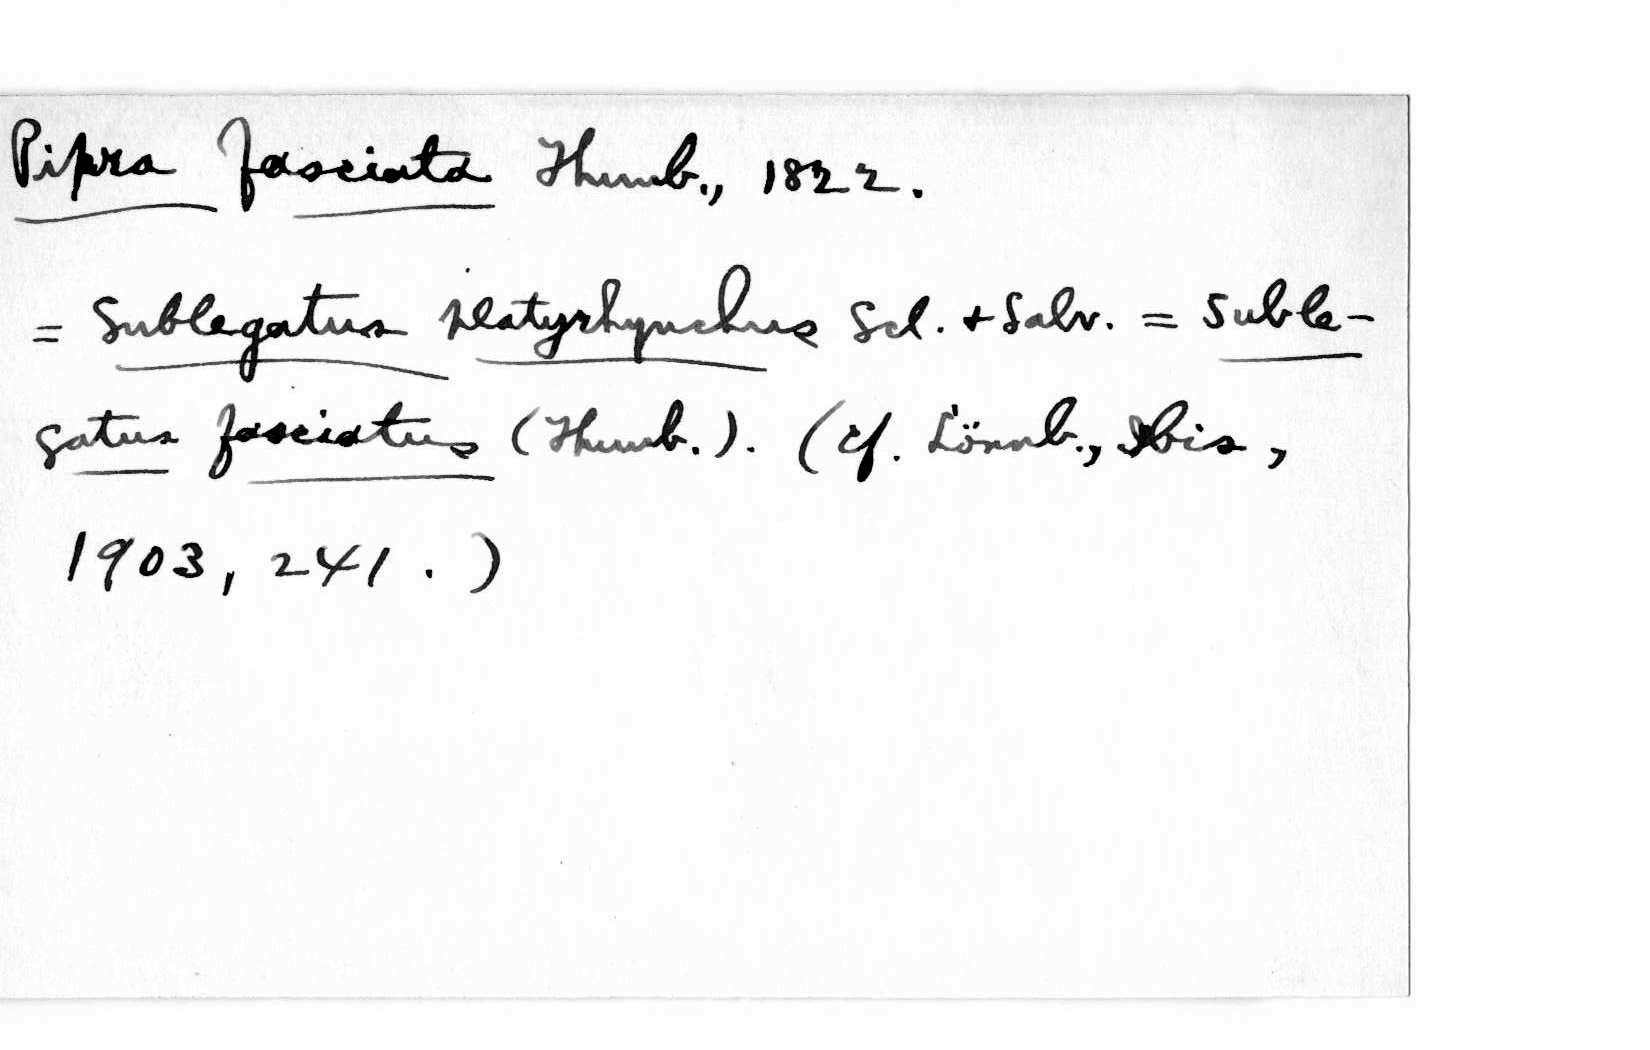 Pipra fasciata Thunb., 1822.
= Sublegatus platyrhynchus Scl. + Salv. = Suble-
gatus fasciatus (Thunb.). (cf. Lönnb., Ibis,
1903, 241.)